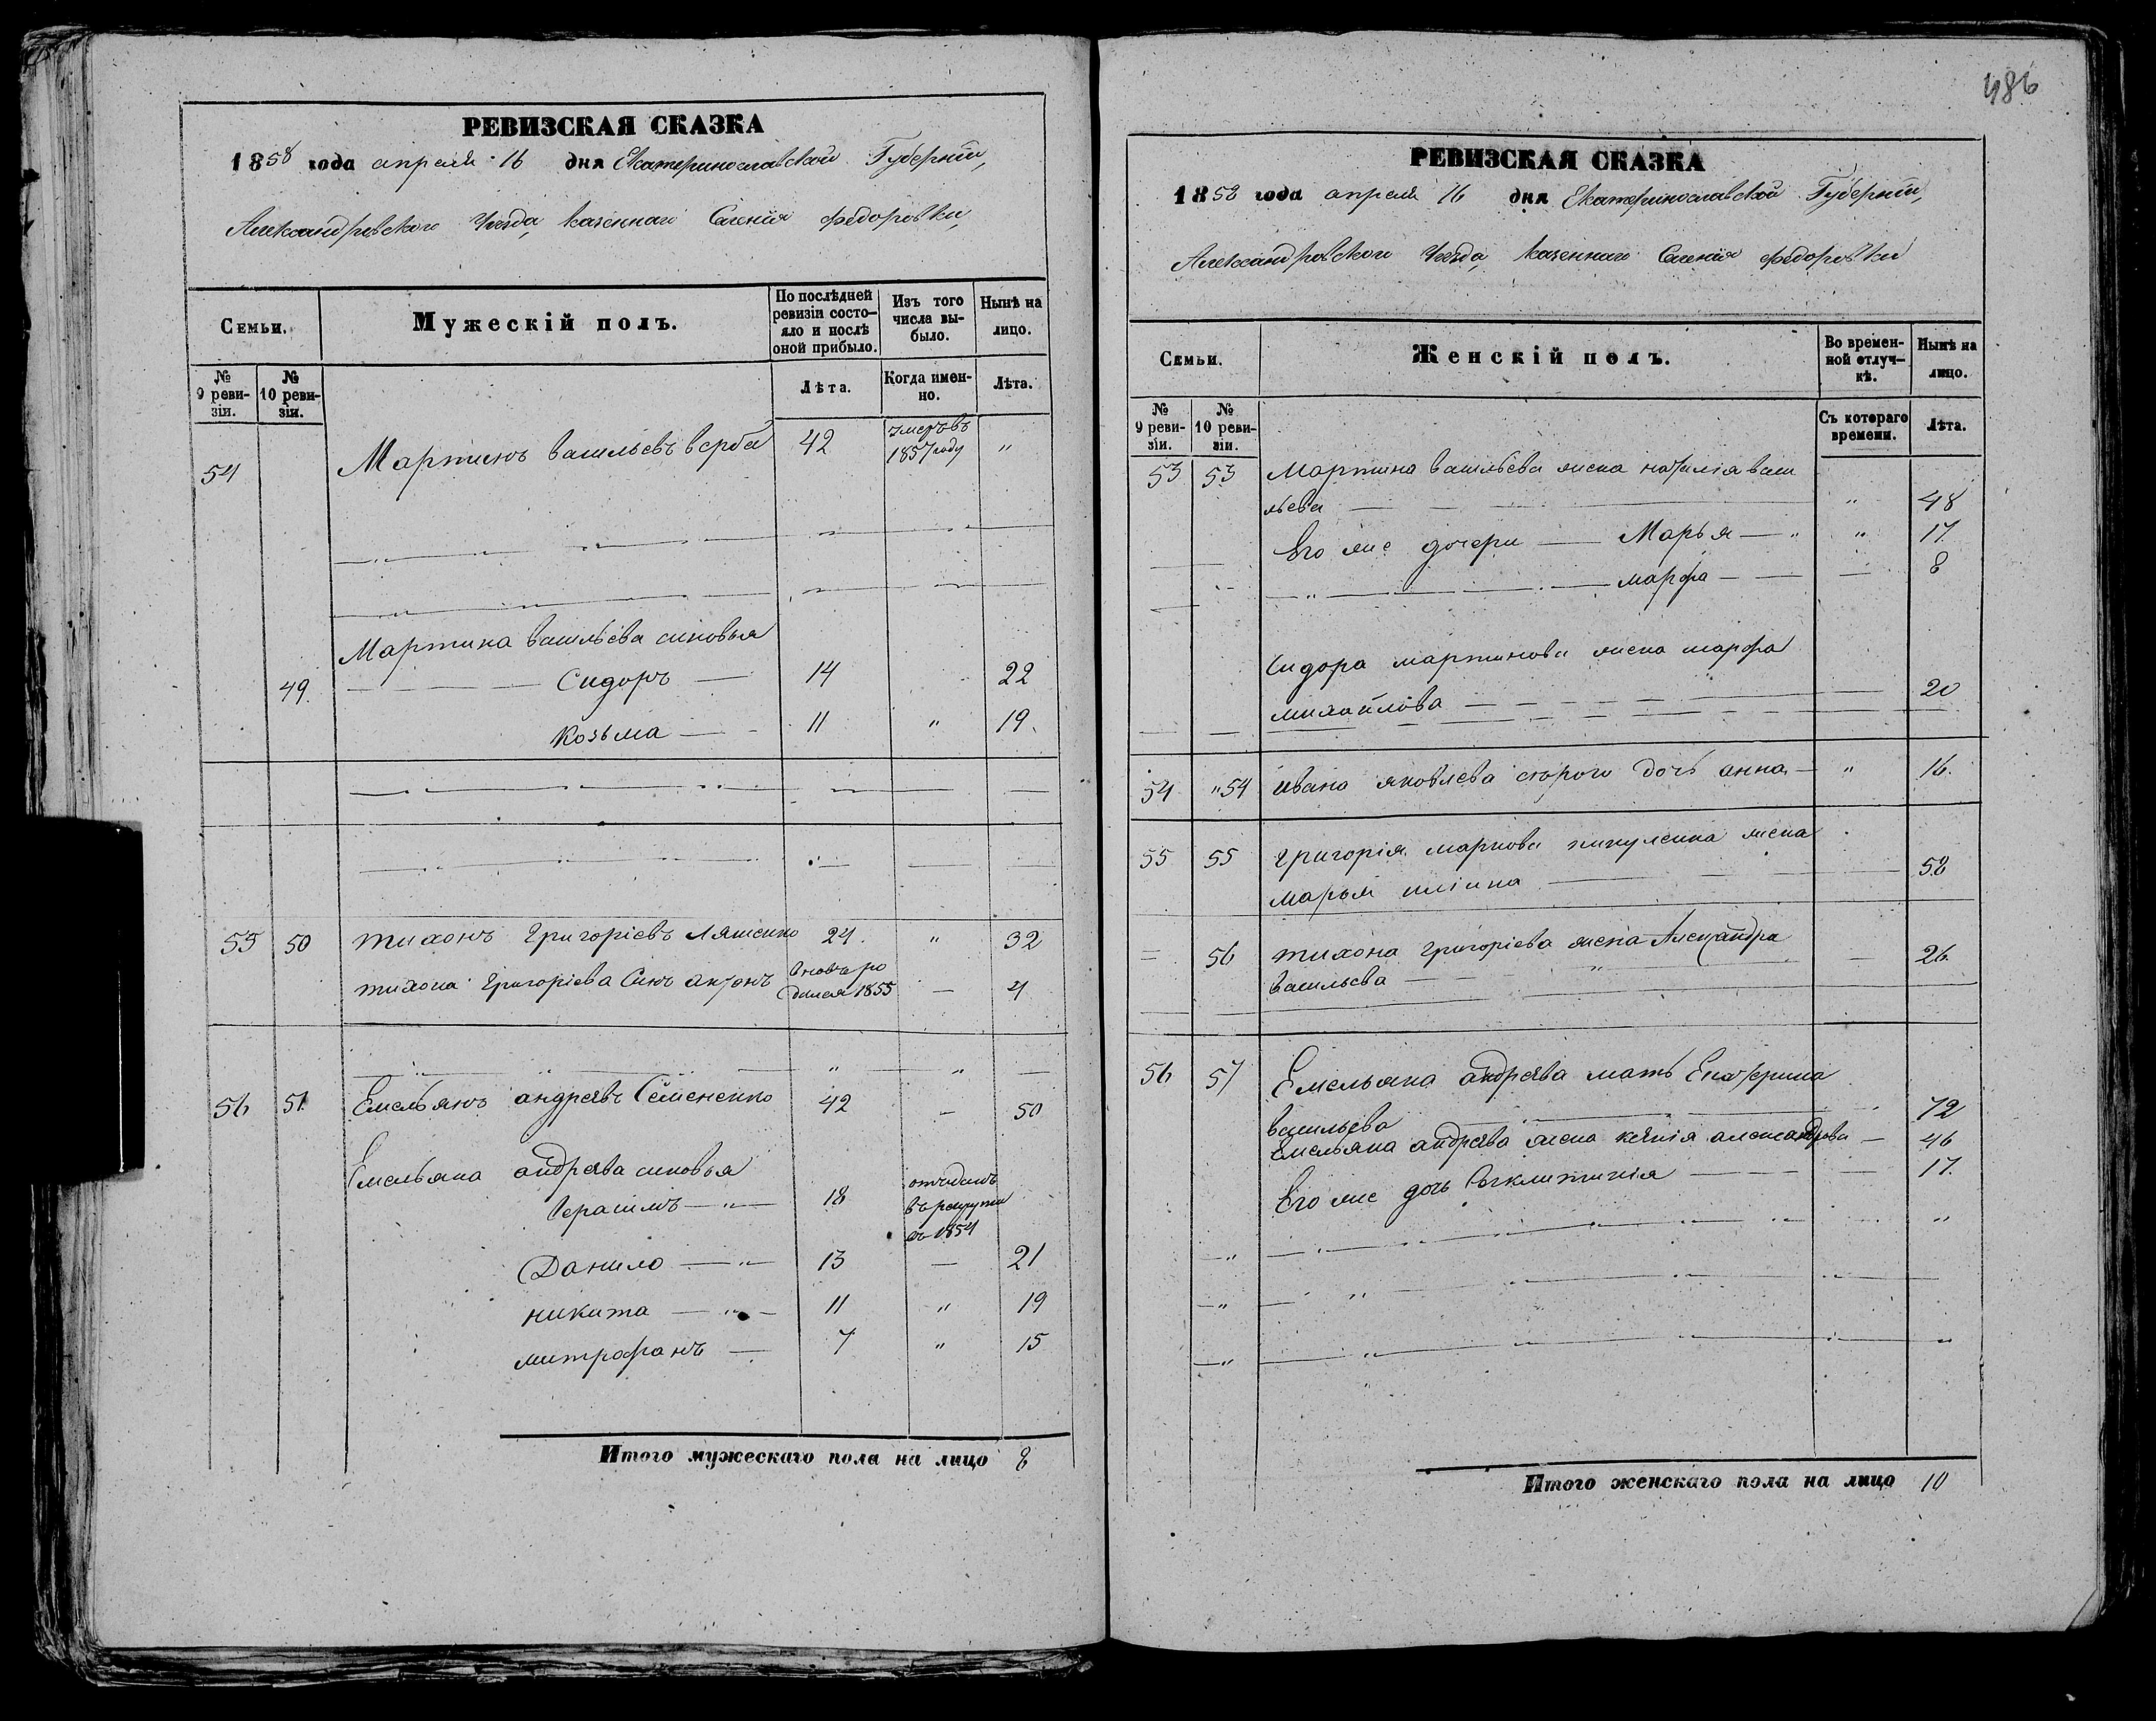 РЕВИЗСКАЯ СКАЗКА
1858 года апреля 16 дня Екатеринославской Губерніи,
Александровского Уезда, казеннаго Селенія Федоровки,
Семьи.
Мужескій полъ.
По послѣдней ревизіи состояло и послѣ оной прибыло.
Изъ того числа выбыло.
Нынѣ на лицо.
№ 9 ревизіи.
№ 10 ревизіи.
Лѣта.
Когда именно.
Лѣта.
54 Мартинъ васильевъ верба 42 умеръ въ 1857 году "
Мартина васильева синовья
49 Сидоръ 14 22
Козьма 11 " 19.
55 50 тихонъ Григоріевъ Ляшенко 24. " 32
тихона Григоріева Синъ антонъ вновь родился 1855 — 4
56 51 Емельянъ андреевъ Семененко 42 — 50
Емельяна андреева синовья
Герасимъ — " — 18 отъданъ въ рекруты въ 1854
Данило — " — 13 — 21
никита — " — 11 " 19
митрофанъ — 7 " 15
Итого мужескаго пола на лицо 8
486
РЕВИЗСКАЯ СКАЗКА
1858 года апреля 16 дня Екатеринославской Губерніи,
Александровского Уезда, казеннаго Селенія Федоровки
Семьи.
Женскій полъ.
Во временной отлучкѣ.
Нынѣ на лицо.
№ 9 ревизіи.
№ 10 ревизіи.
Съ котораго времени.
Лѣта.
53 53 Мартина васильева жена наталія васи
льева " 48
Его же дочери — Марья — " " 17
марфа — — 8
Сидора мартинова жена марфа
михайлова 20
54 " 54 ивана яковлева дочь анна — " 16.
55 55 григорія маркова жена
марья 58
56 тихона григоріева жена Александра
васильева — 26
56 57 Емельяна андреева мать Екатерина
васильева 72
Емельяна андреева жена ксенія александрова — 46
Его же дочь 17.
Итого женскаго пола на лицо 10